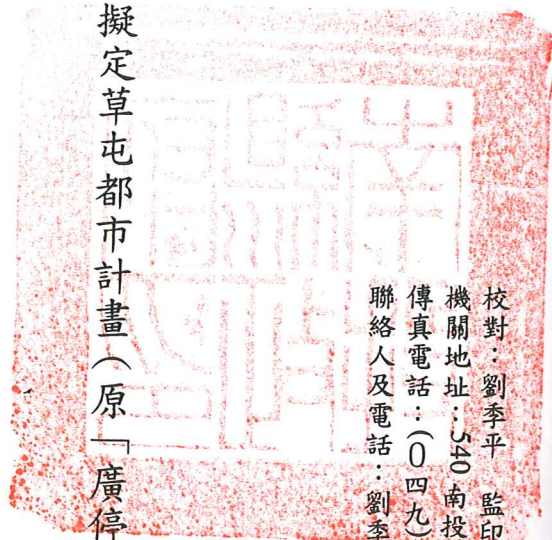 校對：劉季平 監印
機關地址：540南投
傳真電話：(0四九)
聯絡人及電話：劉季
擬定草屯都市計畫（原「廣停